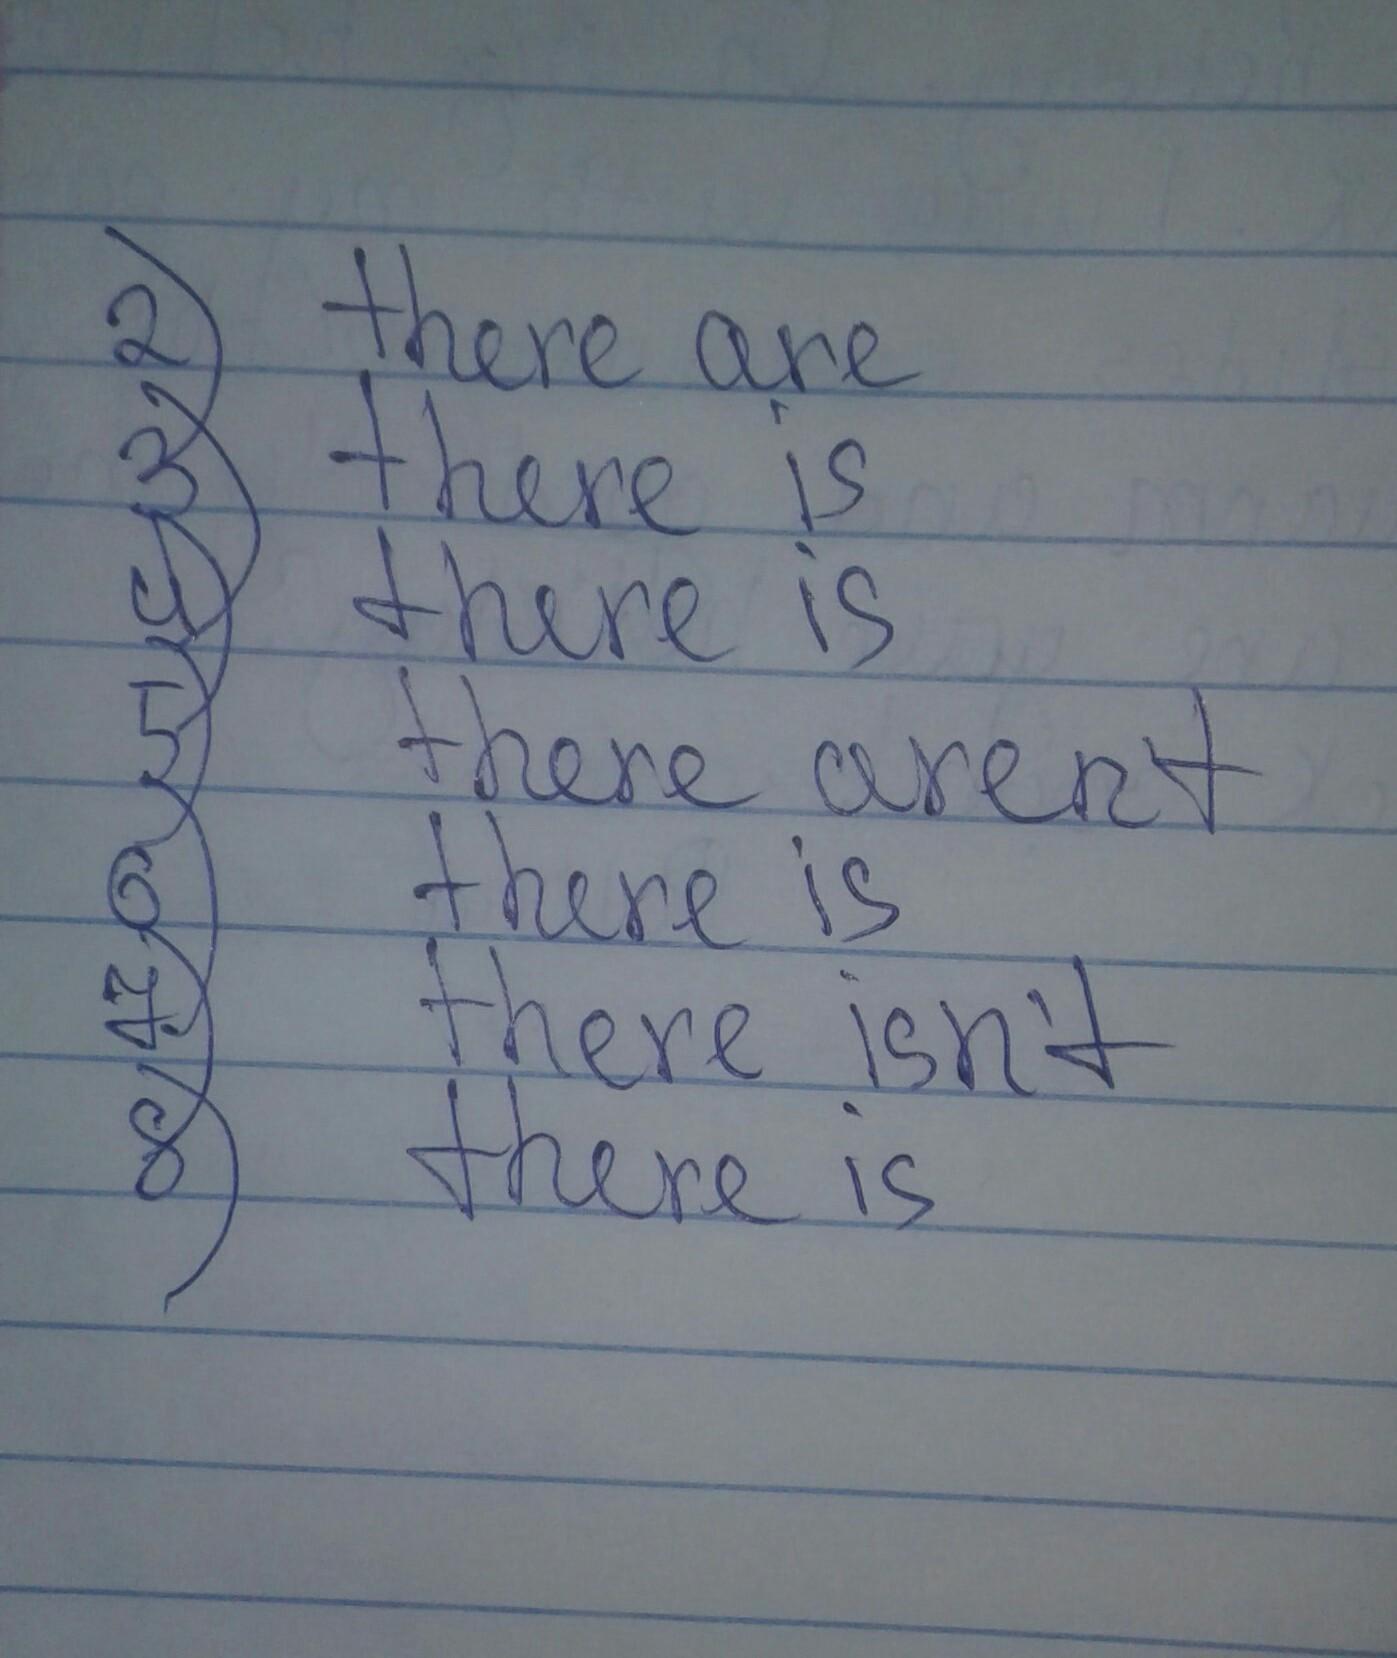 2) there are
3) there is
4) there is
5) there arent
6) there is
7) there isn't
8) there is